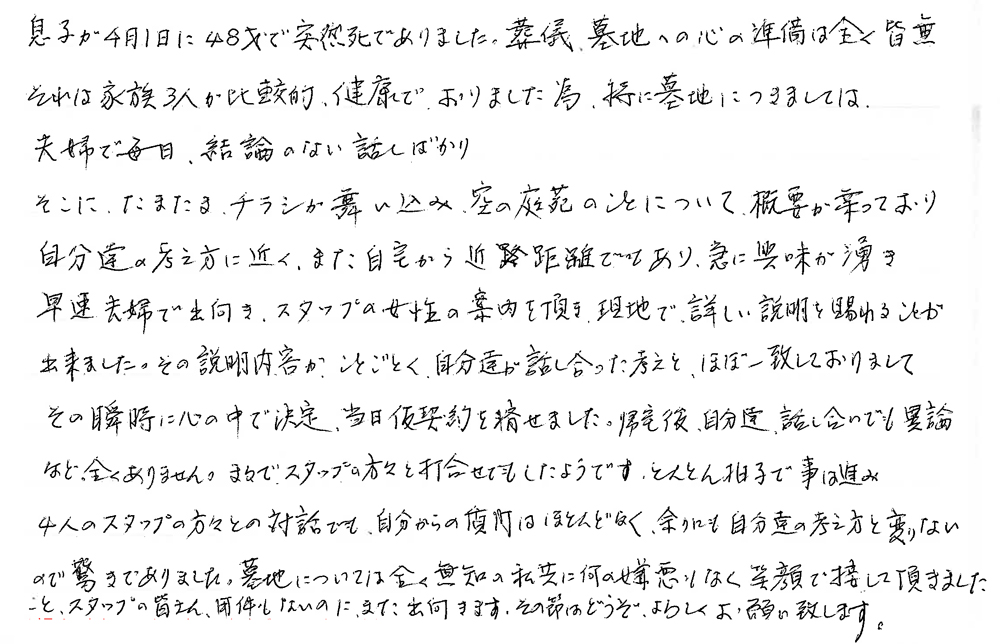 息子が4月1日に48才で突然死でありました。葬儀、墓地への心の準備は全く皆無
それは家族3人が比較的、健康で、おりました為、特に墓地につきましては、
夫婦で毎日、結論のない話しばかり
そこに、たまたま、チラシが舞い込み、空の庭苑のことについて、概要が乗っており
自分達の考え方に近く、また自宅から近路距離でもあり、急に興味が湧き
早速夫婦で出向き、スタップの女性の案内を頂き、現地で、詳しい説明を賜わることが
出来ました。その説明内容が、ことごとく、自分達が話し合った考えと、ほぼ一致しておりまして
その瞬時に心の中で決定、当日仮契約を済せました。帰宅後、自分達、話し合いでも異論
など、全くありません。まるでスタップの方々と打合せでもしたようです、とんとん拍子で事は進み
4人のスタップの方々との対話でも、自分からの質問はほとんどなく、余りにも自分達の考え方と変りない
ので驚きでありました。墓地については全く無知の私共に何の嫌悪もなく笑顔で接して頂きました
こと、スタップの皆さん、用件もないのに、また出向きます。その節はどうぞ、よろしくお願い致します。